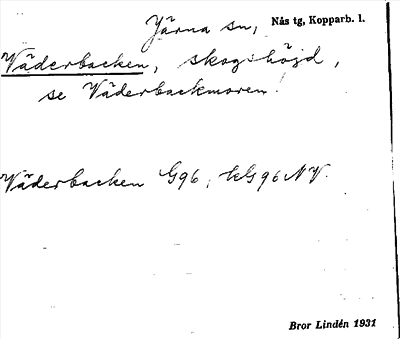 Järna sn, Nås tg, Kopparb. l.
Väderbacken, skogshöjd,
se Väderbackmoren!
Väderbacken G96; kG96NV.
Bror Lindén 1931